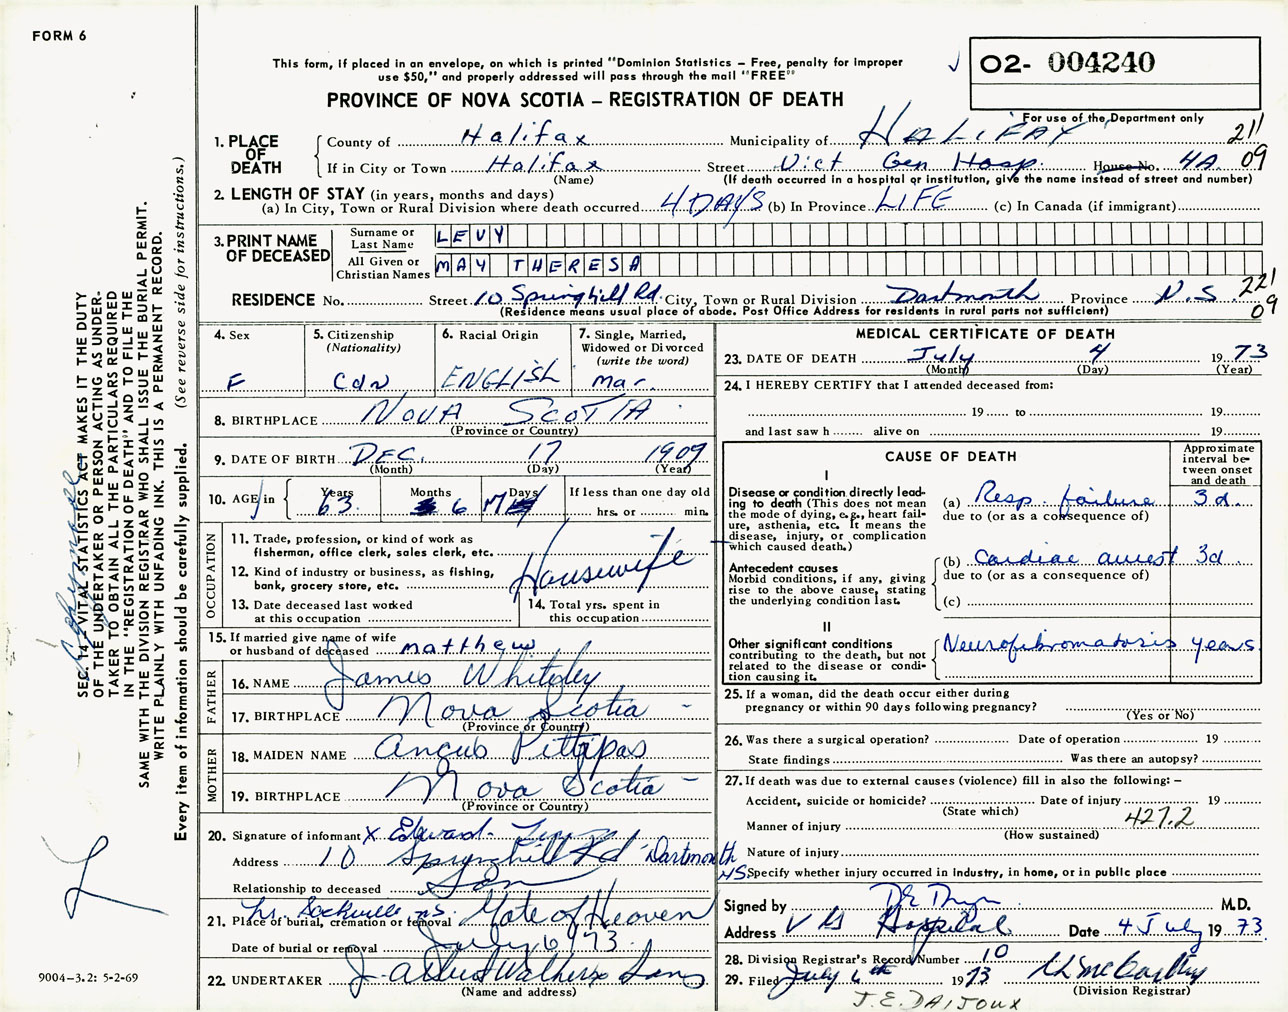 FORM 6
This form, if placed in an envelope, on which is printed "Dominion Statistics – Free, penalty for improper
use $50," and properly addressed will pass through the mail "FREE"
PROVINCE OF NOVA SCOTIA – REGISTRATION OF DEATH
02- 004240
For use of the Department only
211
09
1. PLACE OF DEATH
County of Halifax Municipality of HALIFAX
If in City or Town Halifax Street Vict Gen Hosp. House No. 4A
(Name) (If death occurred in a hospital or institution, give the name instead of street and number)
2. LENGTH OF STAY (in years, months and days)
(a) In City, Town or Rural Division where death occurred 4 DAYS (b) In Province LIFE (c) In Canada (if immigrant)
3. PRINT NAME OF DECEASED
Surname or Last Name LEVY
All Given or Christian Names MAY THERESA
RESIDENCE No. Street 10 Springhill Rd. City, Town or Rural Division Dartmouth Province N.S
221
09
(Residence means usual place of abode. Post Office Address for residents in rural parts not sufficient)
4. Sex
F
5. Citizenship
(Nationality)
Cdn
6. Racial Origin
ENGLISH
7. Single, Married,
Widowed or Divorced
(write the word)
Mar.
8. BIRTHPLACE NOVA SCOTIA
(Province or Country)
9. DATE OF BIRTH DEC. 17 1909
(Month) (Day) (Year)
10. AGE in
Years Months Days If less than one day old
63 6 hrs. or min.
OCCUPATION
11. Trade, profession, or kind of work as
fisherman, office clerk, sales clerk, etc.
12. Kind of industry or business, as fishing,
bank, grocery store, etc.
Housewife
13. Date deceased last worked
at this occupation
14. Total yrs. spent in
this occupation
15. If married give name of wife
or husband of deceased matthew
FATHER
16. NAME James Whiteley
17. BIRTHPLACE Nova Scotia –
(Province or Country)
MOTHER
18. MAIDEN NAME Pettipas
19. BIRTHPLACE Nova Scotia –
(Province or Country)
20. Signature of informant x Edward
Address 10 Springhill Rd Dartmouth
NS
Relationship to deceased Son
21. Place of burial, cremation or removal Sackville NS. Gate of Heaven
Date of burial or removal July 6/73
22. UNDERTAKER J. Albert Walker & Sons
(Name and address)
MEDICAL CERTIFICATE OF DEATH
23. DATE OF DEATH July 4 1973
(Month) (Day) (Year)
24. I HEREBY CERTIFY that I attended deceased from:
19 to 19
and last saw h alive on 19
CAUSE OF DEATH
Approximate
interval be-
tween onset
and death
I
Disease or condition directly lead-
ing to death (This does not mean
the mode of dying, e.g., heart fail-
ure, asthenia, etc. It means the
disease, injury, or complication
which caused death.)
(a) Resp. failure 3d.
due to (or as a consequence of)
Antecedent causes
Morbid conditions, if any, giving
rise to the above cause, stating
the underlying condition last.
(b) Cardiac arrest 3d.
due to (or as a consequence of)
(c)
II
Other significant conditions
contributing to the death, but not
related to the disease or condi-
tion causing it.
Neurofibromatosis years
25. If a woman, did the death occur either during
pregnancy or within 90 days following pregnancy?
(Yes or No)
26. Was there a surgical operation? Date of operation 19
State findings Was there an autopsy?
27. If death was due to external causes (violence) fill in also the following: –
Accident, suicide or homicide? Date of injury 19
(State which)
427.2
Manner of injury
(How sustained)
Nature of injury
Specify whether injury occurred in industry, in home, or in public place
Signed by M.D.
Address V G Hospital Date 4 July 1973.
28. Division Registrar's Record Number 10
29. Filed July 6th 1973
(Division Registrar)
SEC. 14, VITAL STATISTICS ACT MAKES IT THE DUTY
OF THE UNDERTAKER OR PERSON ACTING AS UNDER-
TAKER TO OBTAIN ALL THE PARTICULARS REQUIRED
IN THE "REGISTRATION OF DEATH" AND TO FILE THE
SAME WITH THE DIVISION REGISTRAR WHO SHALL ISSUE THE BURIAL PERMIT.
WRITE PLAINLY WITH UNFADING INK. THIS IS A PERMANENT RECORD.
Every item of information should be carefully supplied. (See reverse side for instructions.)
9004-3.2: 5-2-69